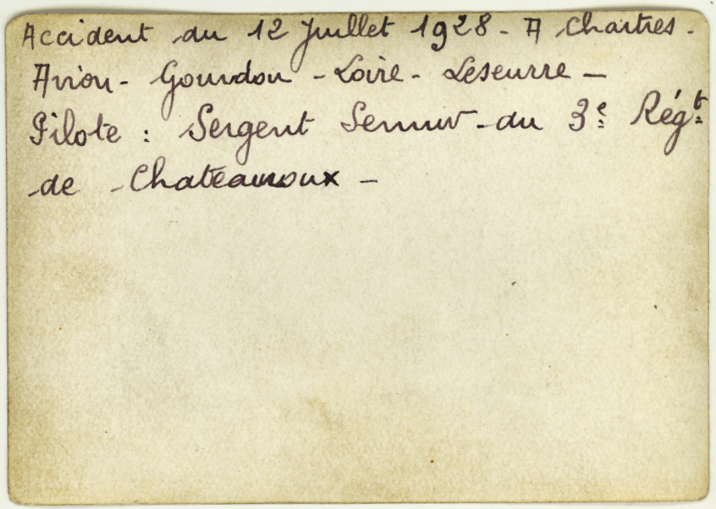 Accident du 12 Juillet 1928 - A Chartres -
Avion - Gourdou - Loire - Leseurre -
Pilote : Sergent - du 3e Régt
de Chateauroux -